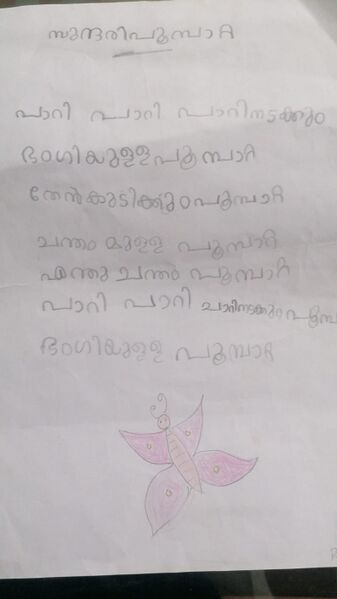 സുന്ദരിപൂമ്പാറ്റ
പാറി പാറി പാറിനടക്കും
ഭംഗിയുള്ള പൂമ്പാറ്റ
തേൻകുടിക്കും പൂമ്പാറ്റ
ചന്തം മുള്ള പൂമ്പാറ്റ
എന്തു ചന്തം പൂമ്പാറ്റ
പാറി പാറി പാറിനടക്കും
ഭംഗിയുള്ള പൂമ്പാറ്റ